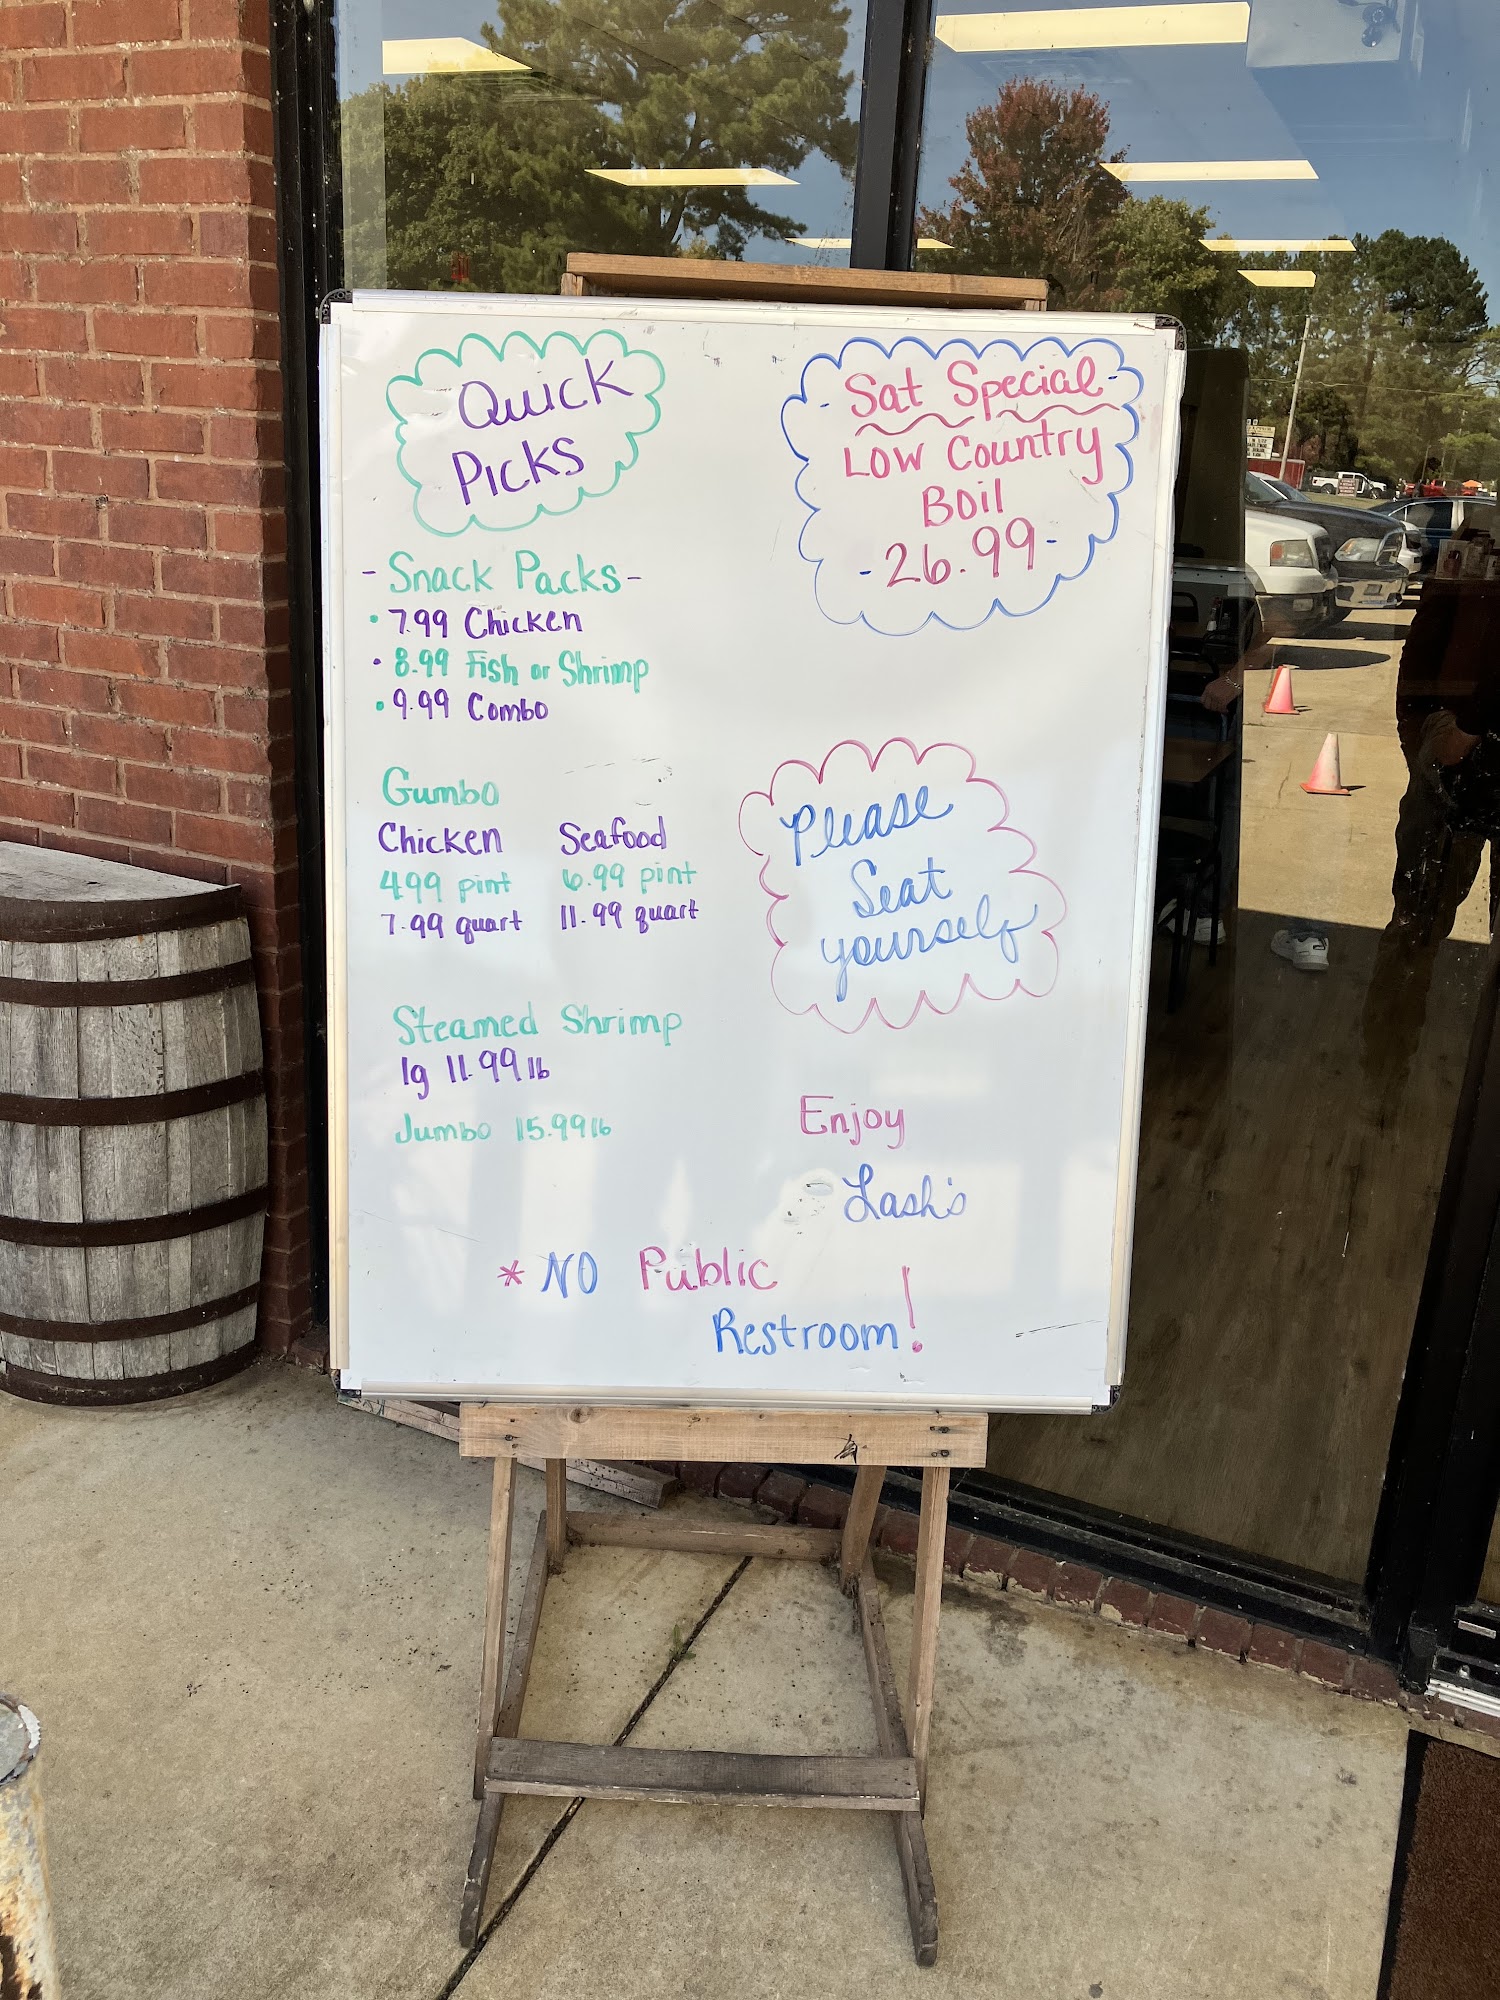 Quick
Picks
- Snack Packs -
• 7.99 Chicken
• 8.99 Fish or Shrimp
• 9.99 Combo
Gumbo
Chicken Seafood
4.99 pint 6.99 pint
7.99 quart 11.99 quart
Steamed Shrimp
lg 11.99 lb
Jumbo 15.99 lb
- Sat Special -
Low Country
Boil
- 26.99 -
Please
Seat
yourself
Enjoy
Lash's
* NO Public
Restroom!